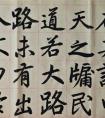 天之牖民
道若大路
路未有出